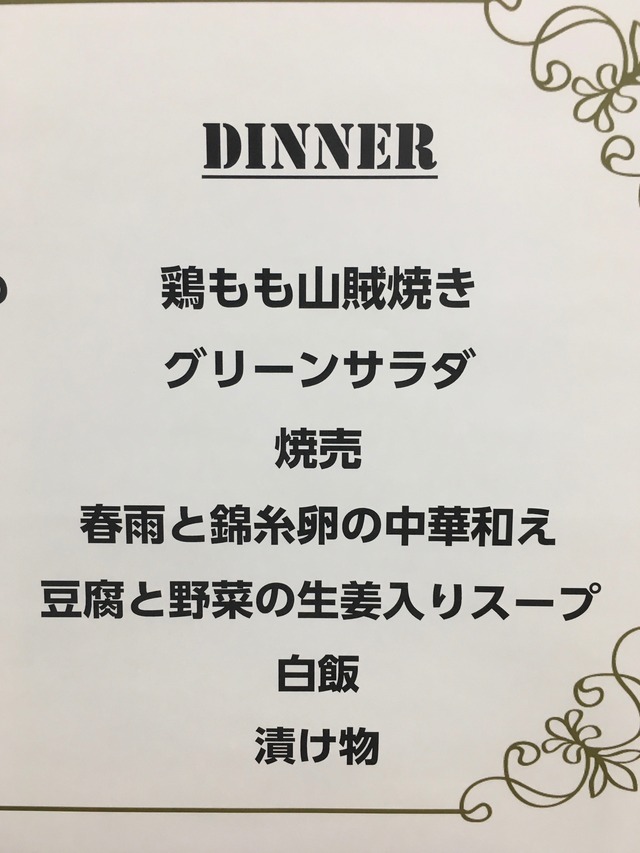 DINNER
鶏もも山賊焼き
グリーンサラダ
焼売
春雨と錦糸卵の中華和え
豆腐と野菜の生姜入りスープ
白飯
漬け物